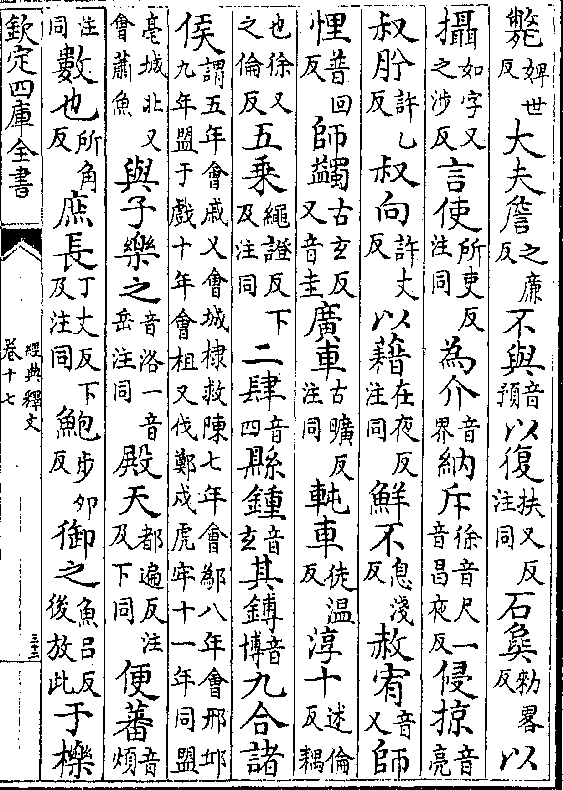 斃婢世反大夫詹之廉反不與音預以復扶又反注同石㚟勑畧反以
攝如字又之涉反言使所吏反注同為介音界納斥徐音尺一音昌夜反侵掠音亮
叔肸許乙反叔向許丈反以藉在夜反注同鮮不息淺反赦宥音又師
悝普回反師蠲古玄反又音圭廣車古曠反注同軘車徒温反淳十述倫反耦
也徐又之倫反五乘繩證反下及注同二肆音四縣鍾音玄其鎛音博九合諸
侯謂五年會戚又會城棣救陳七年會鄬八年會邢丘九年盟于戲十年會柤又伐鄭戍虎牢十一年同盟
亳城北又會蕭魚與子樂之音洛一音岳注同殿天都遍反注及下同便蕃音煩
注同數也所角反庶長丁丈反下及注同鮑步卯反御之魚呂反後放此于櫟
欽定四庫全書
經典釋文
卷十七
三十三